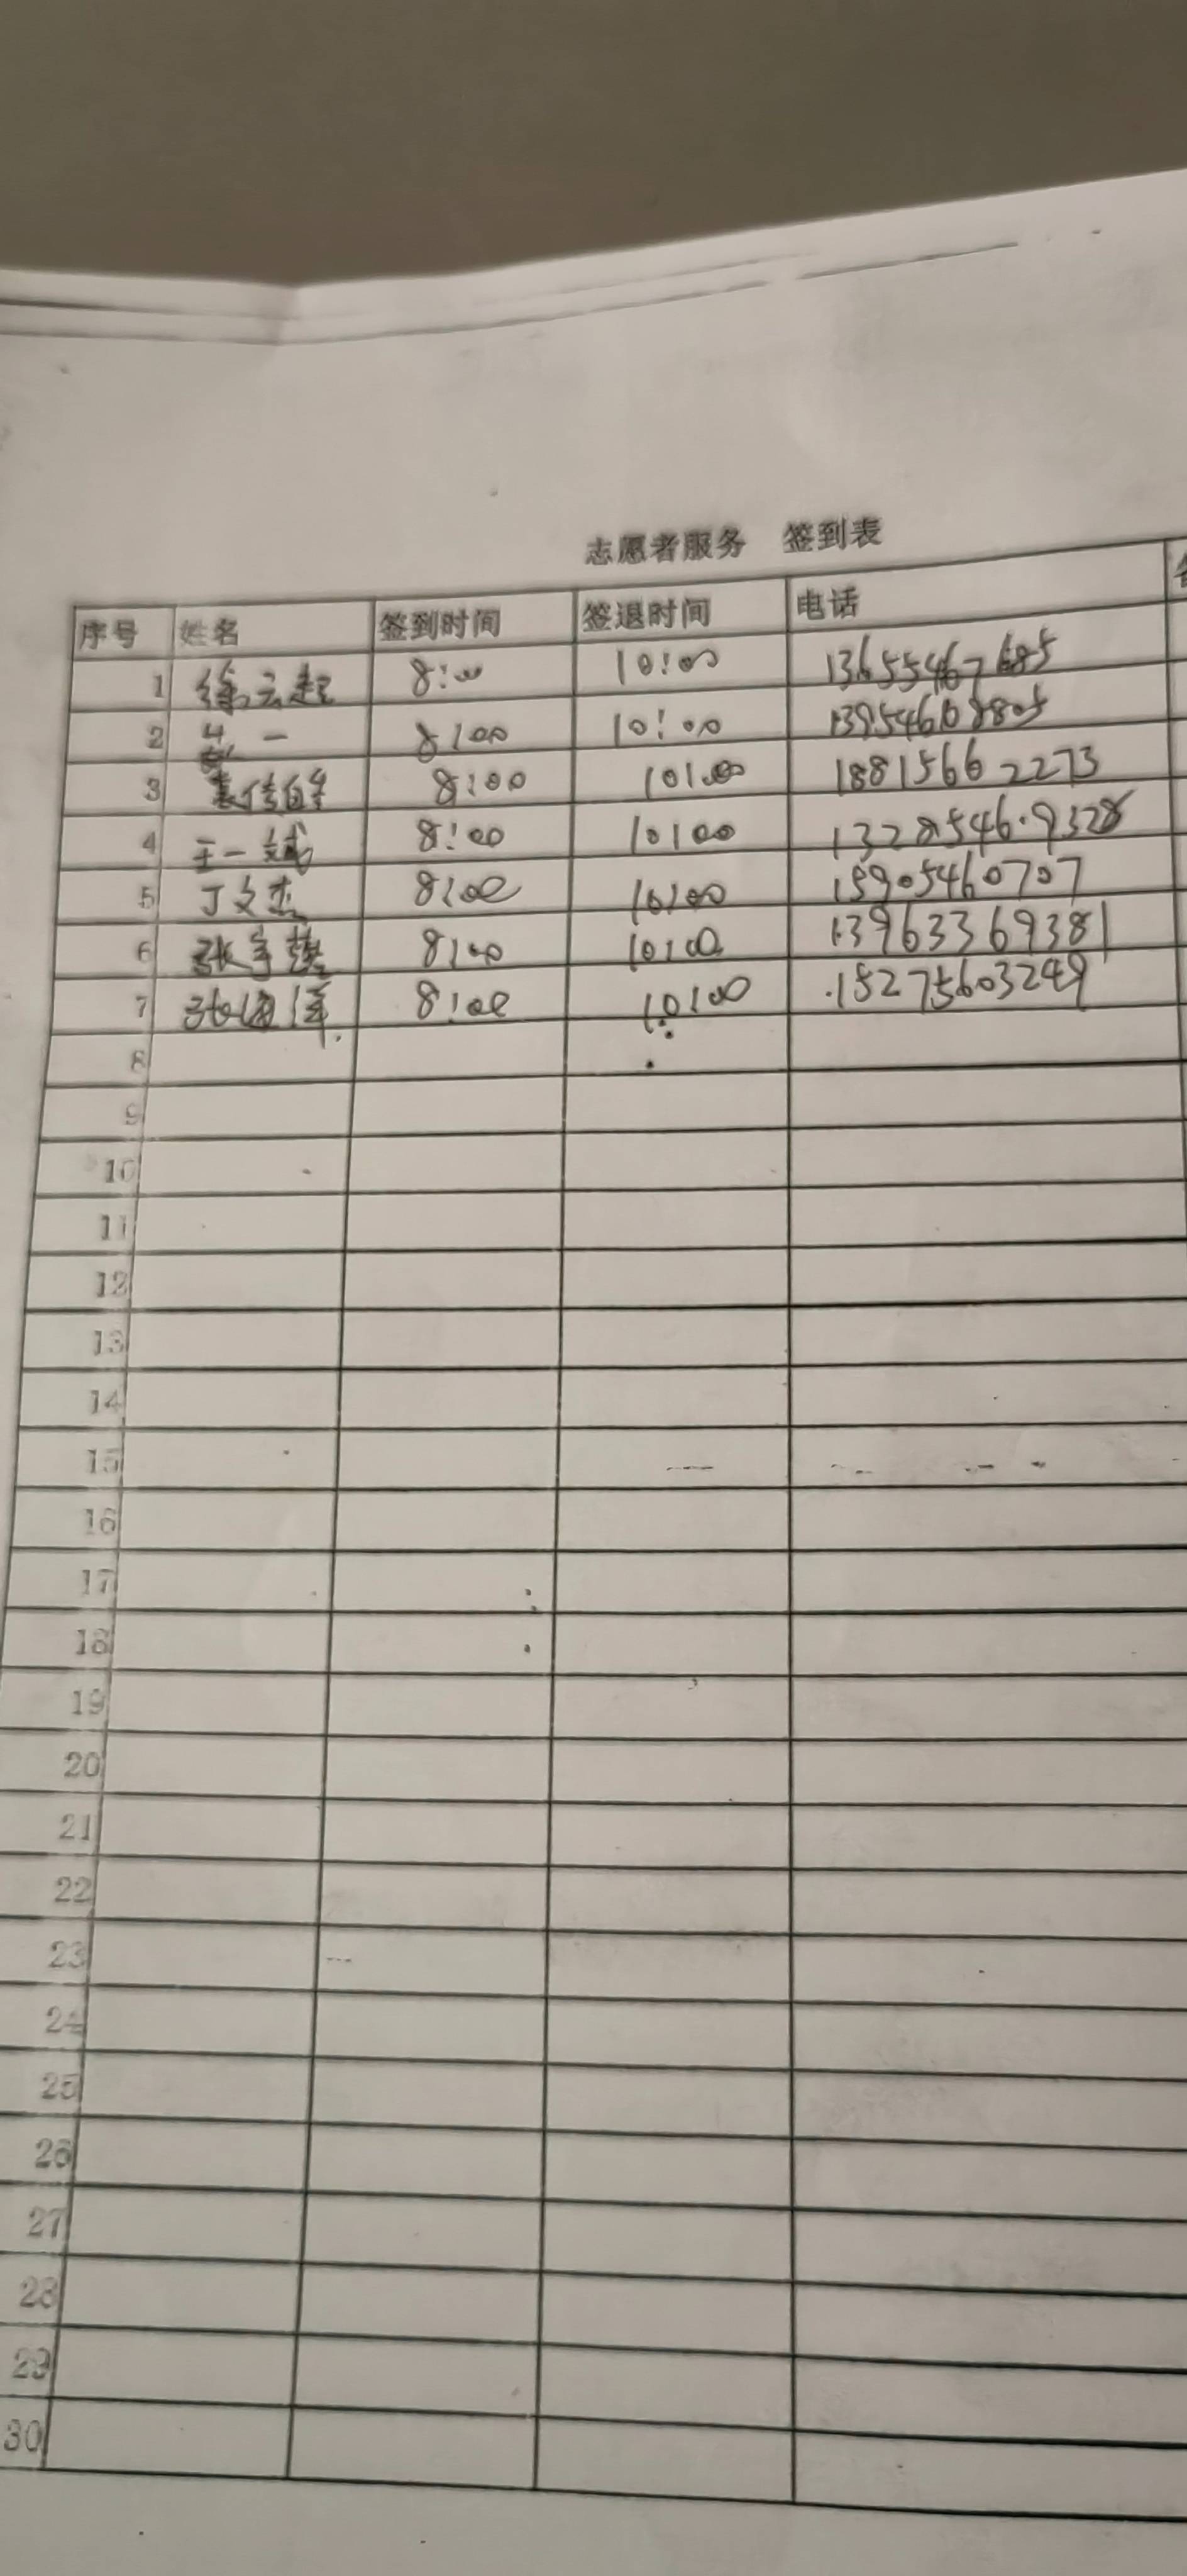 志愿者服务 签到表
序号 姓名 签到时间 签退时间 电话
1 徐云起 8:00 10:00 13655467685
2 一 8:00 10:00 13954608805
3 8:00 10:00 18815662273
4 王一斌 8:00 10:00 13285469328
5 丁文杰 8:00 10:00 15905460707
6 张宇 8:00 10:00 13963369381
7 张海洋 8:00 10:00 15275603249
8
9
10
11
12
13
14
15
16
17
18
19
20
21
22
23
24
25
26
27
28
29
30